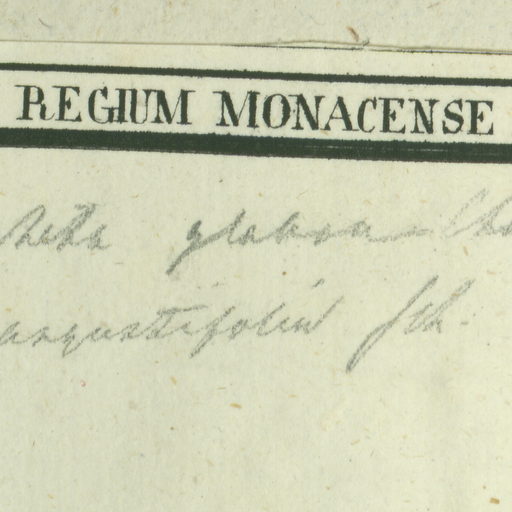 REGIUM MONACENSE
glabra
angustifolia Sch.